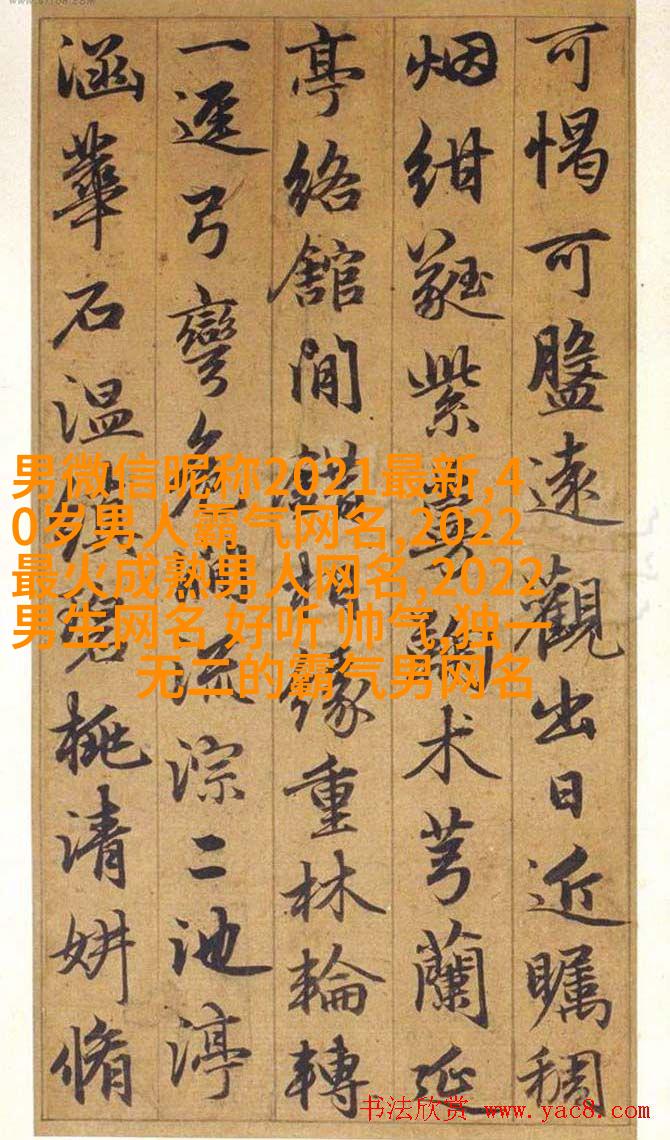 可愒可盤遠觀出日近矚稠
烟紺蕤紫术芎蘭延
亭絡館間緣重林輪轉
一逕弓彎淙二池渟
涵華石温桃清妍脩
男微信昵称2021最新,4
0岁男人霸气网名,2022
最火成熟男人网名,2022
男生网名 好听 帅气,独一
无二的霸气男网名
书法欣赏 www.yac8.com